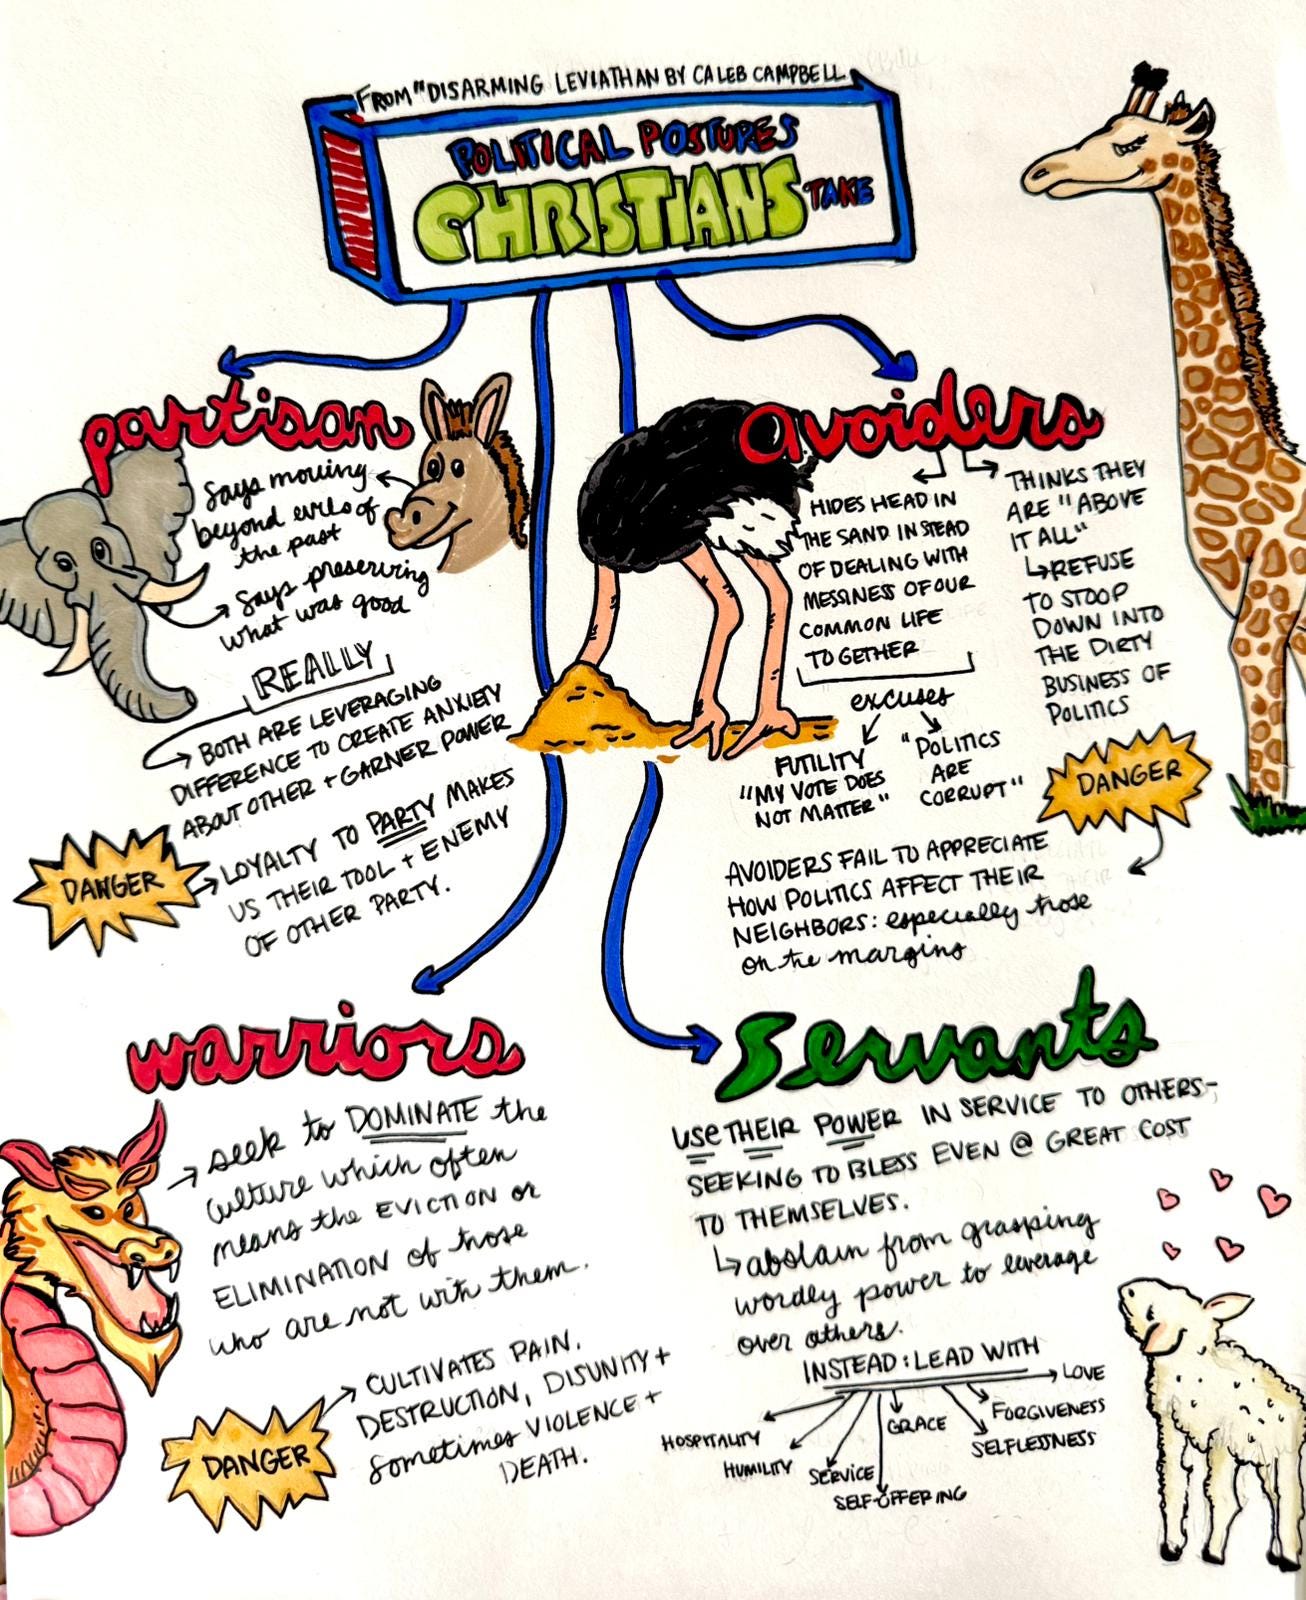 FROM "DISARMING LEVIATHAN BY CALEB CAMPBELL
POLITICAL POSTURES
CHRISTIANS TAKE
partisan
Says moving
beyond evils of
the past
Says preserving
what was good
REALLY
BOTH ARE LEVERAGING
DIFFERENCE TO CREATE ANXIETY
ABOUT OTHER + GARNER POWER
DANGER
LOYALTY TO PARTY MAKES
US THEIR TOOL + ENEMY
OF OTHER PARTY.
avoiders
HIDES HEAD IN
THE SAND INSTEAD
OF DEALING WITH
MESSINESS OF OUR
COMMON LIFE
TOGETHER
excuses
FUTILITY
"MY VOTE DOES
NOT MATTER"
"POLITICS
ARE
CORRUPT"
THINKS THEY
ARE "ABOVE
IT ALL"
REFUSE
TO STOOP
DOWN INTO
THE DIRTY
BUSINESS OF
POLITICS
DANGER
AVOIDERS FAIL TO APPRECIATE
HOW POLITICS AFFECT THEIR
NEIGHBORS: especially those
on the margins
warriors
seek to DOMINATE the
culture which often
means the EVICTION or
ELIMINATION of those
who are not with them.
DANGER
CULTIVATES PAIN,
DESTRUCTION, DISUNITY +
sometimes VIOLENCE +
DEATH.
Servants
USE THEIR POWER IN SERVICE TO OTHERS-
SEEKING TO BLESS EVEN @ GREAT COST
TO THEMSELVES.
abstain from grasping
wordly power to leverage
over others.
INSTEAD: LEAD WITH
LOVE
FORGIVENESS
SELFLESSNESS
GRACE
HOSPITALITY
HUMILITY
SERVICE
SELF-OFFERING